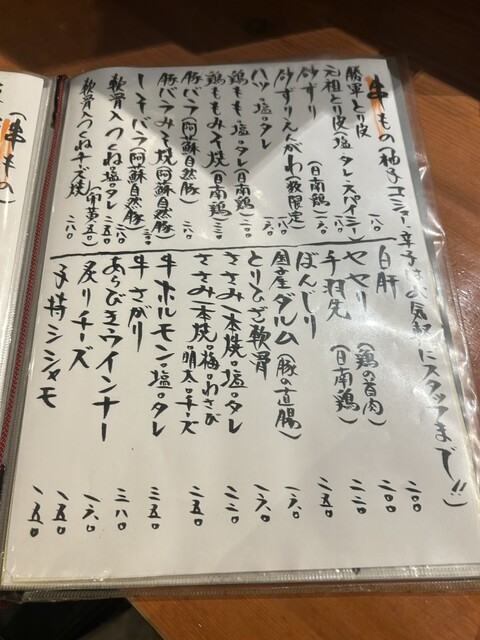 串もの(柚子コショー、辛子はお気軽にスタッフまで!!)
勝軍とり皮 一八〇
元祖とり皮(塩・タレ・スパイシー)
砂ずり(日南鶏)
砂ずりえんがわ(数限定)
ハツ・塩・タレ
鶏もも・塩・タレ(日南鶏)
鶏ももみそ焼(日南鶏)
豚バラ(阿蘇自然豚)
豚バラみそ焼(阿蘇自然豚)
しそバラ(阿蘇自然豚)
軟骨入つくね・塩・タレ
軟骨入つくねチーズ焼
白肝 二〇〇
セセリ(鶏の首肉) 二〇〇
手羽先(日南鶏) 二二〇
ぼんじり 一五〇
国産ダルム(豚の直腸) 一六〇
とりひざ軟骨 一六〇
ささみ一本焼・塩・タレ 二二〇
ささみ一本焼・梅・わさび
・明太・チーズ 二五〇
牛ホルモン・塩・タレ 二五〇
牛さがり 三八〇
あらびきウインナー 一六〇
炙りチーズ 一五〇
子持シシャモ 一五〇
(串もの)